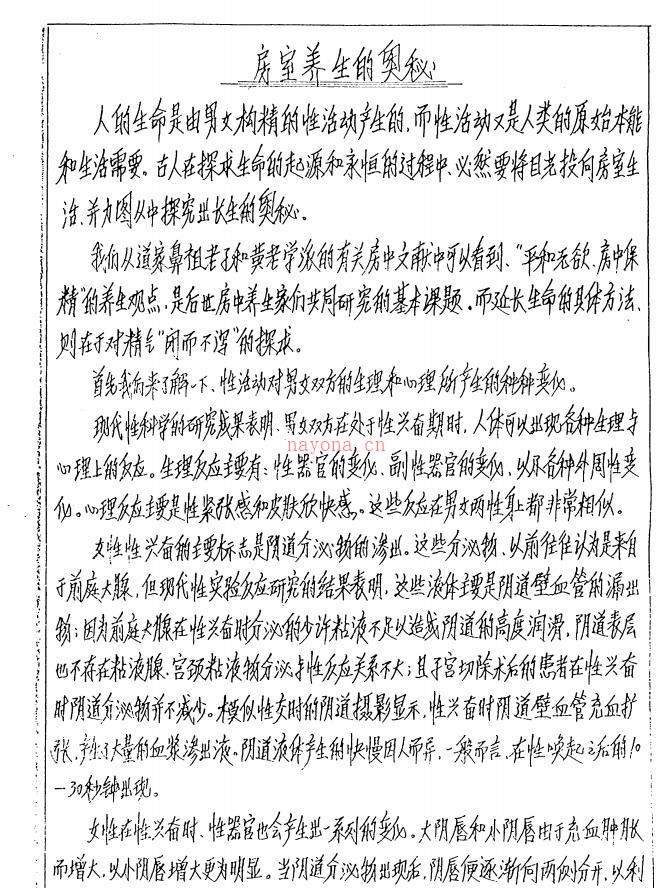 房室养生的奥秘
人的生命是由男女构精的性活动产生的,而性活动又是人类的原始本能
和生活需要。古人在探求生命的起源和永恒的过程中、必然要将目光投向房室生
活、并力图从中探究出长生的奥秘。
我们从道家鼻祖老子和黄老学派的有关房中文献中可以看到、“平和无欲、房中保
精”的养生观点,是后世房中养生家们共同研究的基本课题。而延长生命的具体方法、
则在于对精气“闭而不泻”的探求。
首先我们来了解一下、性活动对男女双方的生理和心理所产生的种种变化。
现代性科学的研究成果表明、男女双方在处于性兴奋期时、人体可以出现各种生理与
nayona.cn
心理上的反应。生理反应主要有:性器官的变化、副性器官的变化、以及各种外周性变
化。心理反应主要是性紧张感和皮肤欣快感。这些反应在男女两性身上都非常相似。
女性性兴奋的主要标志是阴道分泌物的渗出。这些分泌物、以前往往认为是来自
于前庭大腺,但现代性实验反应研究的结果表明,这些液体主要是阴道壁血管的漏出
物;因为前庭大腺在性兴奋时分泌的少许粘液不足以造成阴道的高度润滑,阴道表层
也不存在粘液腺、宫颈粘液物分泌与性反应关系不大;且子宫切除术后的患者在性兴奋
时阴道分泌物并不减少。模似性交时的阴道摄影显示,性兴奋时阴道壁血管充血扩
张,产生了大量的血浆渗出液。阴道液体产生的快慢因人而异,一般而言,在性唤起之后的10
-30秒钟出现。
女性在性兴奋时、性器官也会产生出一系列的变化。大阴唇和小阴唇由于充血肿胀
而增大,以小阴唇增大更为明显。当阴道分泌物出现后,阴唇便逐渐向两侧分开,以利